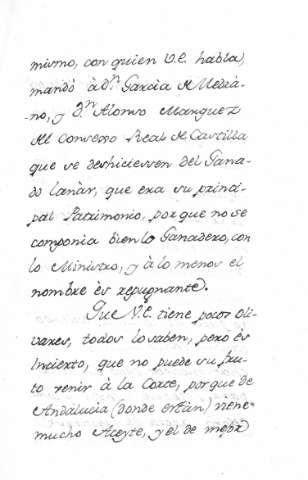 mismo, con quien V.E. habla,
mandó à d.ⁿ Garcia de Mediá-
-no, y d.ⁿ Alonso Marquez
del Consexo Real de Castilla
que se deshiciessen del Gana-
do lanàr, que exa su princi-
pal Patrimonio, porque no se
componia bien lo Ganadero, con
lo Ministro, y à lo menos el
nombre ès repugnante.
Que V.E. tiene pocos Oli-
vares, todos lo saben, pero ès
Incierto, que no puede su fru-
to venir à la Corte, porque de
Andalucia (donde estàn) viene
mucho Aceyte, y el de mejor